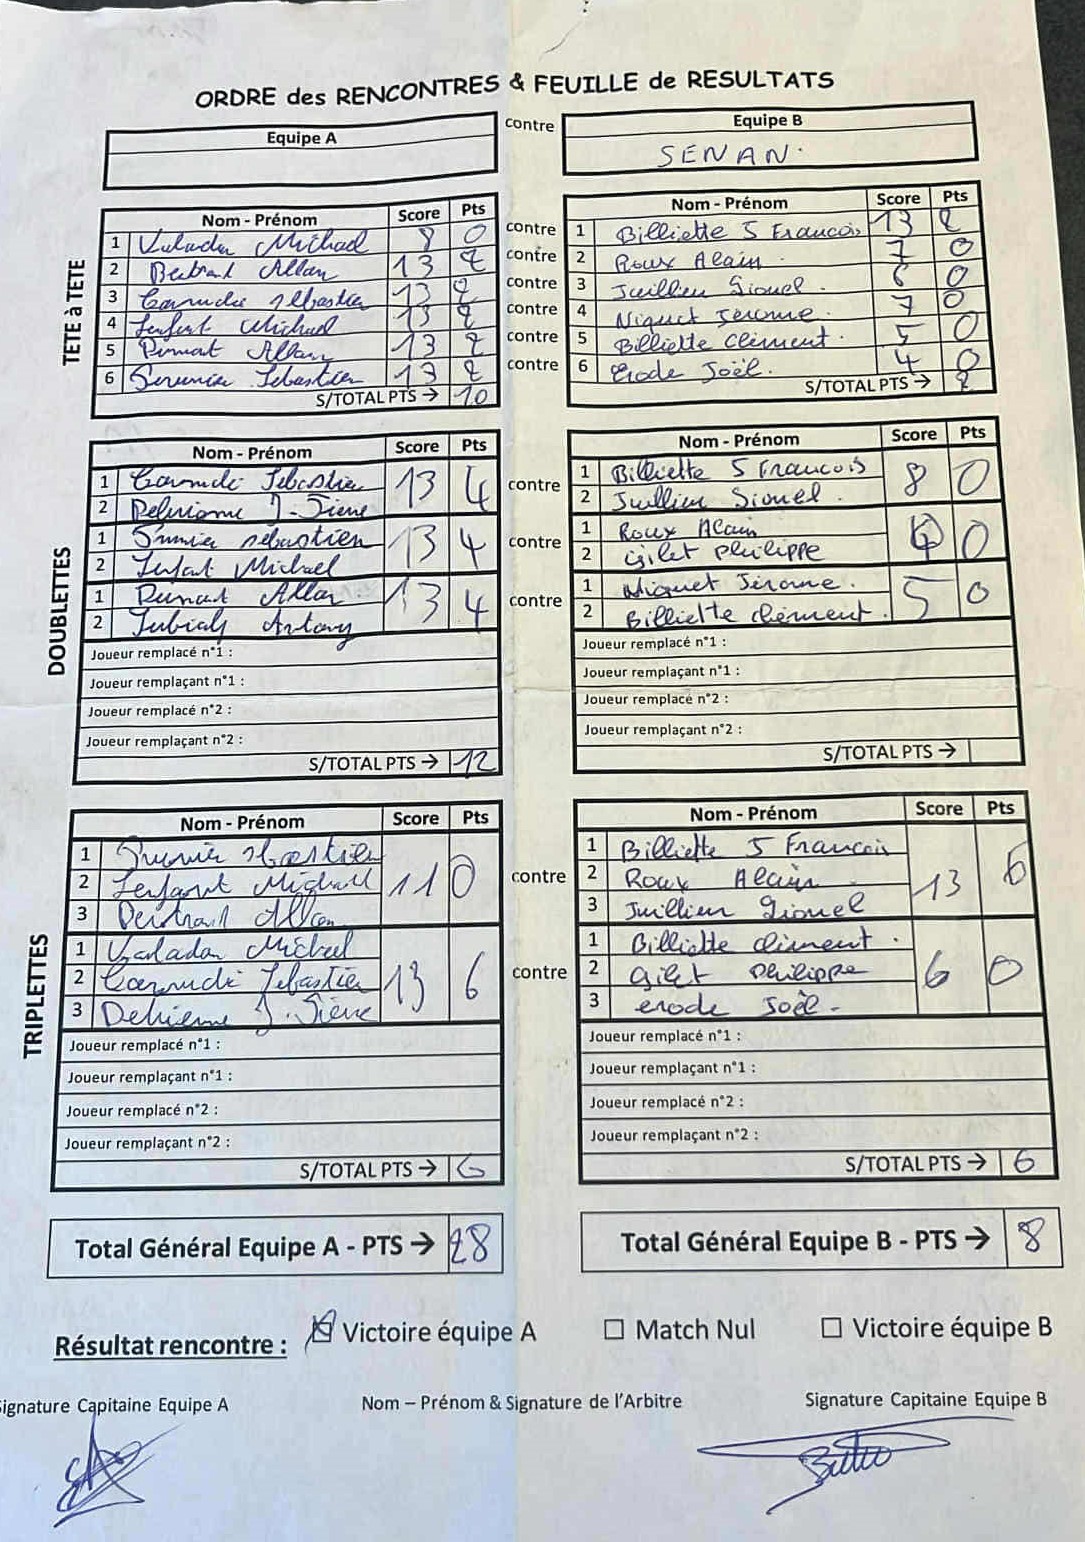 ORDRE des RENCONTRES & FEUILLE de RESULTATS
Equipe A contre Equipe B
SENAN.
TETE à TETE
Nom - Prénom Score Pts Nom - Prénom Score Pts
1 Michael 8 0 contre 1 Billiette J Francois 13 2
2 Allan 13 2 contre 2 Roux Alain. 7 0
3 Sébastien 13 2 contre 3 Juillien Lionel. 6 0
4 Michael 13 2 contre 4 Niquet Jérome. 7 0
5 Allan 13 2 contre 5 Billiette Clément. 5 0
6 Sébastien 13 2 contre 6 Erode Joël. 4 0
S/TOTAL PTS → 10 S/TOTAL PTS → 2
DOUBLETTES
Nom - Prénom Score Pts Nom - Prénom Score Pts
1 Sebastien 13 4 contre 1 Billiette J Francois 8 0
2 2 Juillien Lionel.
1 sebastien 13 4 contre 1 Roux Alain 0
2 Michael 2 Gilet Philippe
1 Allan 13 4 contre 1 Niquet Jérome. 5 0
2 Antony 2 Billiette clément.
Joueur remplacé n°1 : Joueur remplacé n°1 :
Joueur remplaçant n°1 : Joueur remplaçant n°1 :
Joueur remplacé n°2 : Joueur remplacé n°2 :
Joueur remplaçant n°2 : Joueur remplaçant n°2 :
S/TOTAL PTS → 12 S/TOTAL PTS →
TRIPLETTES
Nom - Prénom Score Pts Nom - Prénom Score Pts
1 1 Billiette J Francois
2 Michael 11 0 contre 2 Roux Alain 13 6
3 Allan 3 Juillien Lionel
1 Michael 1 Billiette clément.
2 Sebastien 13 6 contre 2 Gilet Philippe 6 0
3 3 erode Joël.
Joueur remplacé n°1 : Joueur remplacé n°1 :
Joueur remplaçant n°1 : Joueur remplaçant n°1 :
Joueur remplacé n°2 : Joueur remplacé n°2 :
Joueur remplaçant n°2 : Joueur remplaçant n°2 :
S/TOTAL PTS → 6 S/TOTAL PTS → 6
Total Général Equipe A - PTS → 28 Total Général Equipe B - PTS → 8
Résultat rencontre : ☒ Victoire équipe A ☐ Match Nul ☐ Victoire équipe B
ignature Capitaine Equipe A Nom – Prénom & Signature de l'Arbitre Signature Capitaine Equipe B